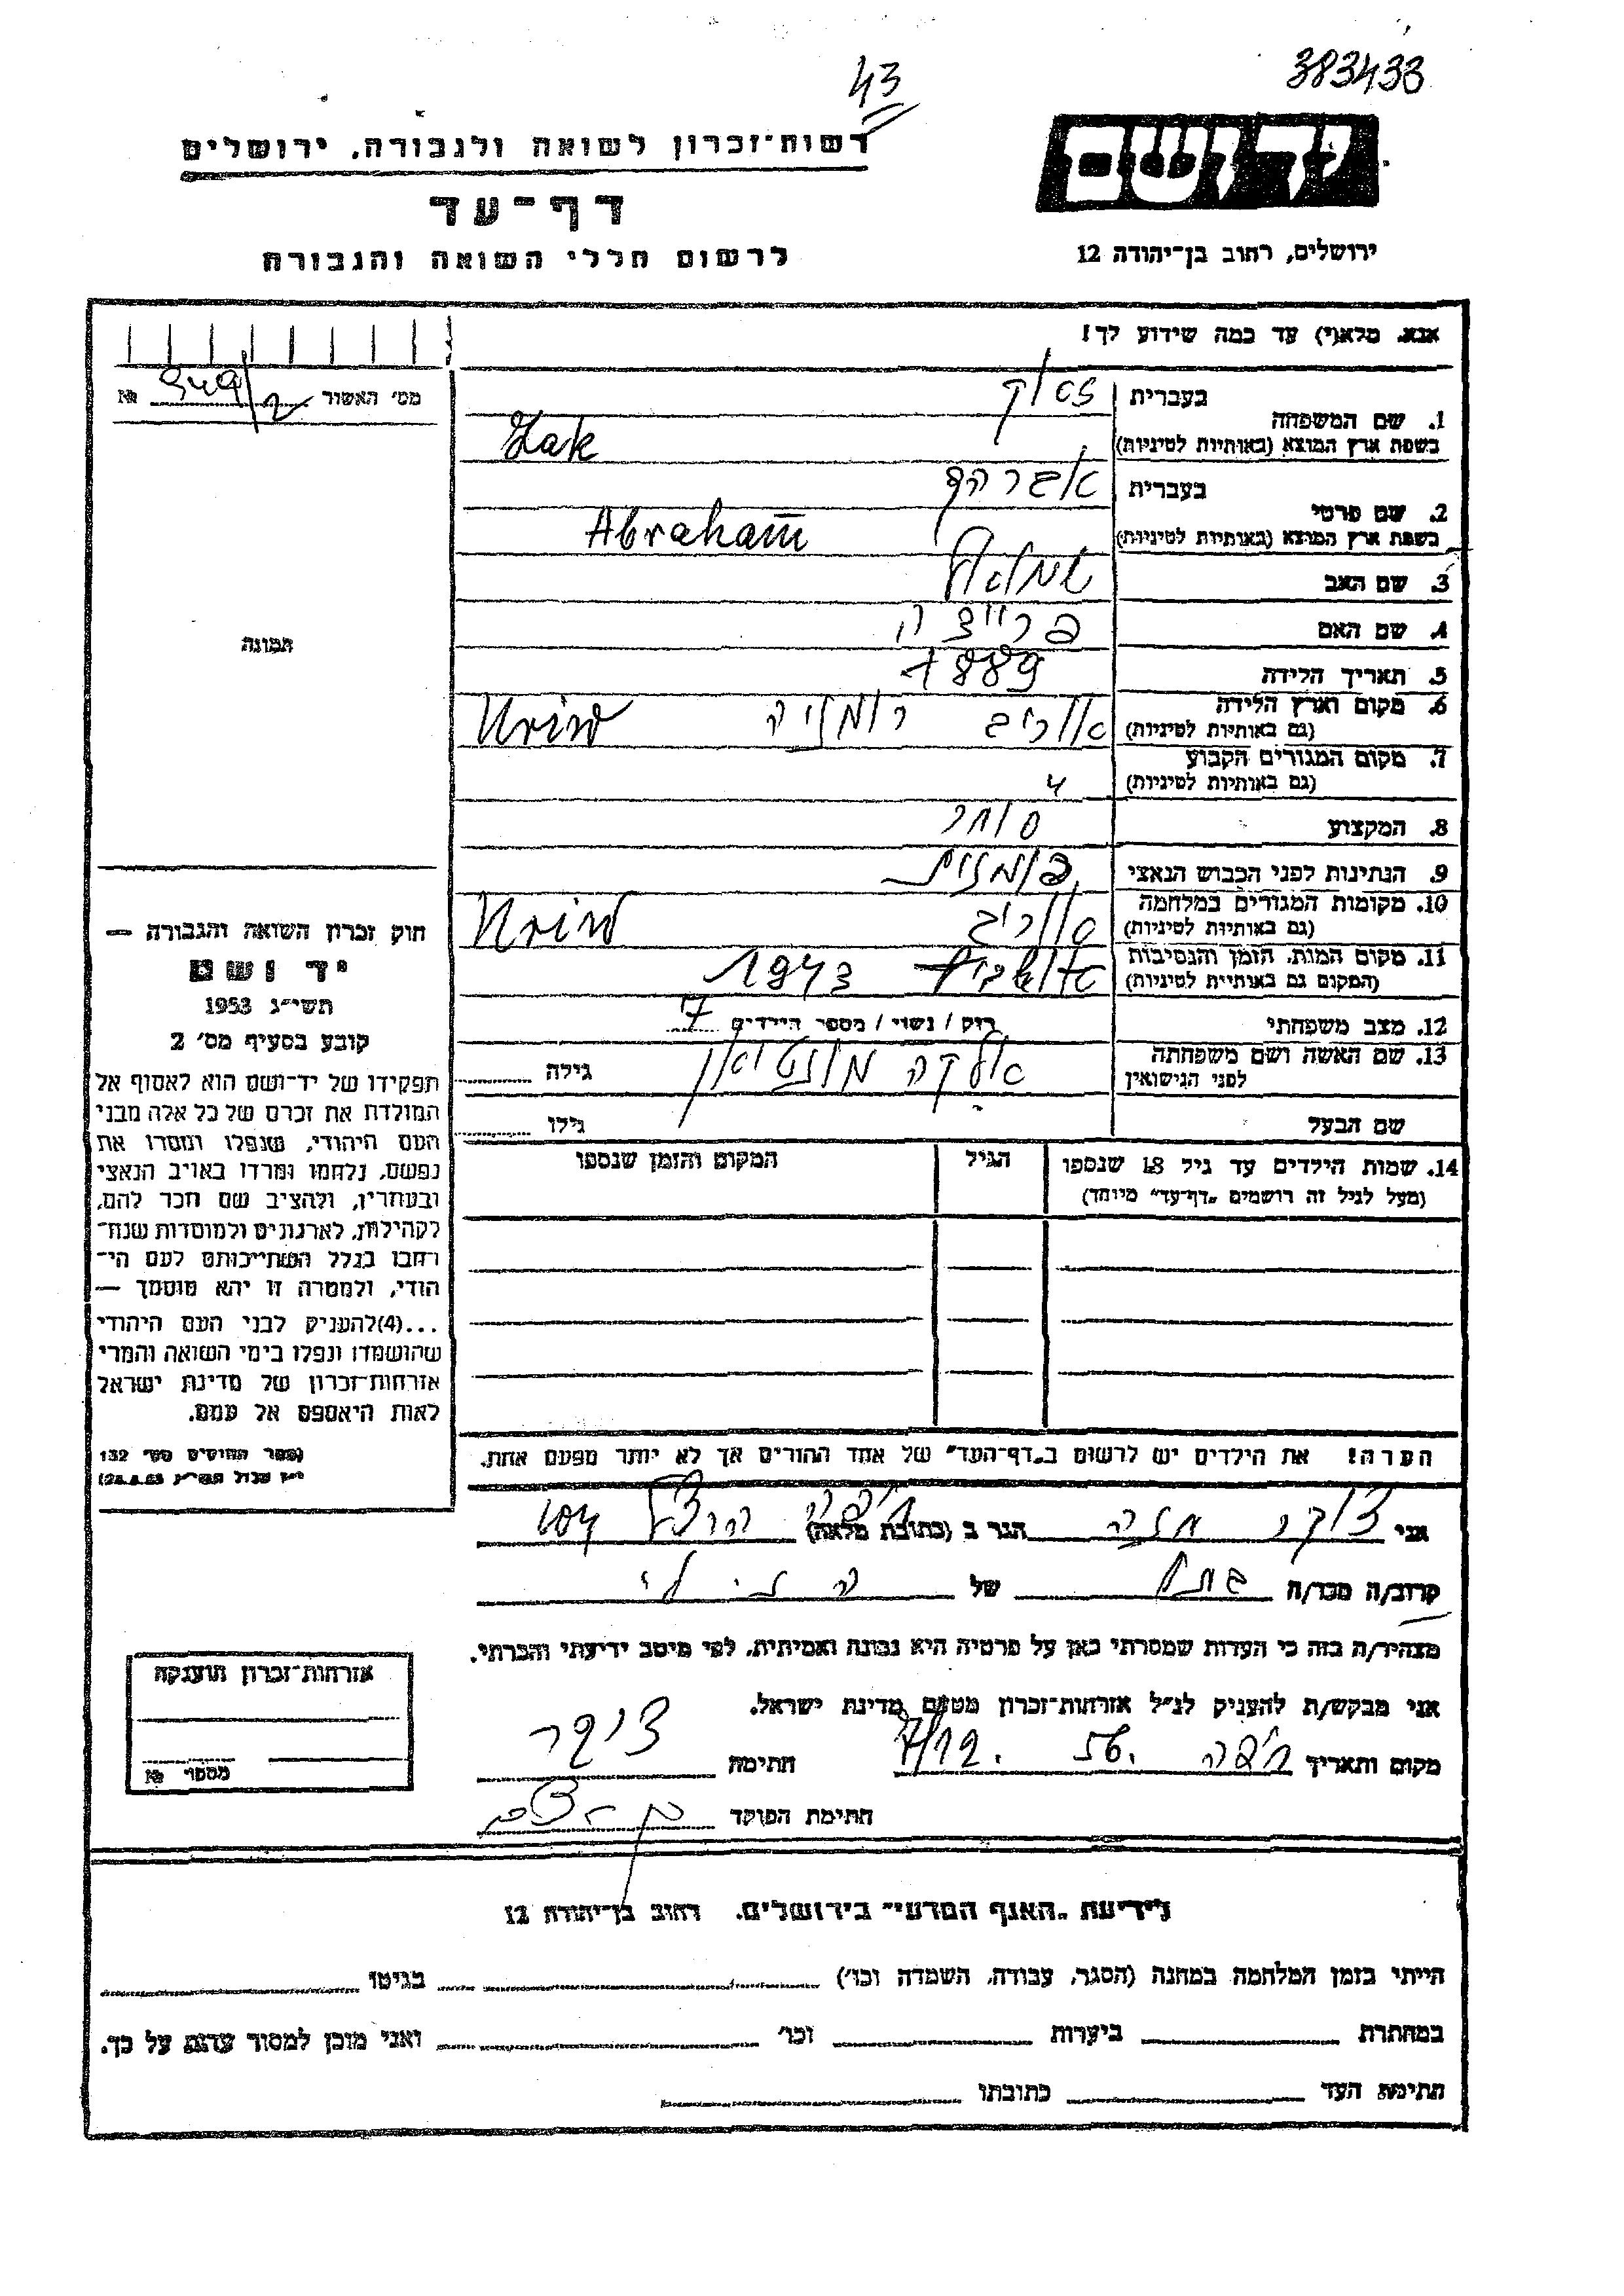 43
383433
רשות־זכרון לשואה ולגבורה, ירושלים
יד ושם
דף־עד
לרשום חללי השואה והגבורה
ירושלים, רחוב בן־יהודה 12
אנא, מלא(י) עד כמה שידוע לך!
מס׳ האשור № 949/2
1. שם המשפחה
בעברית
בשפת ארץ המוצא (באותיות לטיניות) Zak
2. שם פרטי
בעברית אברהם
בשפת ארץ המוצא (באותיות לטיניות) Abraham
3. שם האב שמואל
4. שם האם
5. תאריך הלידה 1889
6. מקום וארץ הלידה
(גם באותיות לטיניות) רומניה
7. מקום המגורים הקבוע
(גם באותיות לטיניות)
8. המקצוע סוחר
9. הנתינות לפני הכבוש הנאצי רומנית
10. מקומות המגורים במלחמה
(גם באותיות לטיניות)
11. מקום המות, הזמן והנסיבות
(המקום גם באותיות לטיניות) 1943
12. מצב משפחתי רוק / נשוי / מספר הילדים 7
13. שם האשה ושם משפחתה
לפני הנישואין גילה
שם הבעל גילו
14. שמות הילדים עד גיל 18 שנספו
(מעל לגיל זה רושמים „דף־עד״ מיוחד)
הגיל
המקום והזמן שנספו
הערה! את הילדים יש לרשום ב„דף־העד״ של אחד ההורים אך לא יותר מפעם אחת.
תמונה
חוק זכרון השואה והגבורה —
יד ושם
תשי״ג 1953
קובע בסעיף מס׳ 2
תפקידו של יד־ושם הוא לאסוף אל
המולדת את זכרם של כל אלה מבני
העם היהודי, שנפלו ומסרו את
נפשם, נלחמו ומרדו באויב הנאצי
ובעוזריו, ולהציב שם וזכר להם,
לקהילות, לארגונים ולמוסדות שנח־
רבו בגלל השתייכותם לעם הי־
הודי, ולמטרה זו יהא מוסמך —
...(4)להעניק לבני העם היהודי
שהושמדו ונפלו בימי השואה והמרי
אזרחות־זכרון של מדינת ישראל
לאות היאספם אל עמם.
(ספר החוקים מס׳ 132
אני צוקר הגר ב (כתובת מלאה) חיפה הרצל
קרוב/ה מכר/ה של
מצהיר/ה בזה כי העדות שמסרתי כאן על פרטיה היא נכונה ואמיתית, לפי מיטב ידיעתי והכרתי.
אני מבקש/ת להעניק לנ״ל אזרחות־זכרון מטעם מדינת ישראל.
מקום ותאריך חיפה 7/12. 56. חתימה צוקר
חתימת הפוקד
אזרחות־זכרון הוענקה
מספר №
לידיעת „האגף המדעי״ בירושלים, רחוב בן־יהודה 12
הייתי בזמן המלחמה במחנה (הסגר, עבודה, השמדה וכו׳) בגיטו
במחתרת ביערות וכו׳ ואני מוכן למסור עדות על כך.
חתימת העד כתובתו